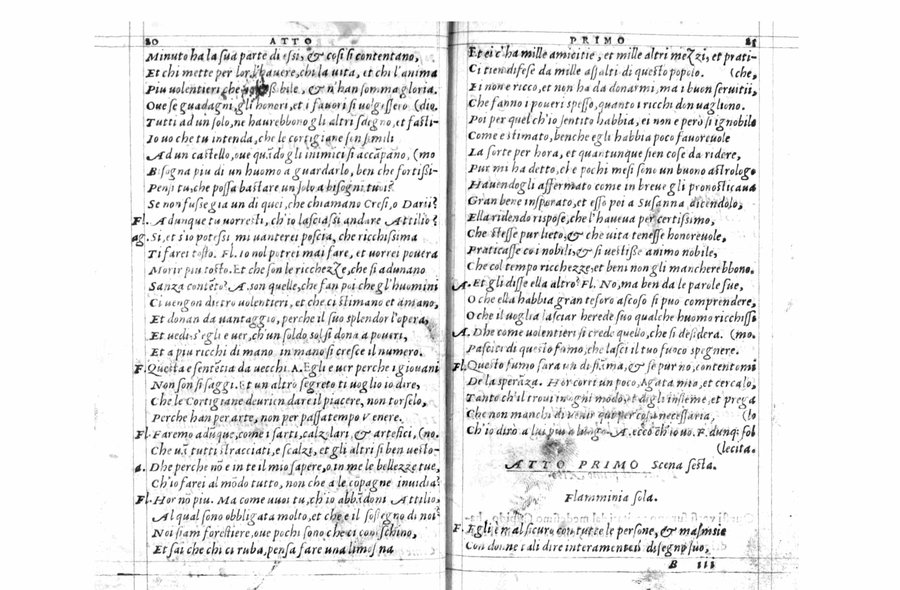 20 ATTO
Minuto ha la sua parte di essi, & cosi si contentano,
Et chi mette per lor l'hauere, chi la vita, et chi l'anima
Piu volentieri che & n'han somma gloria.
Oue se guadagni, gli honeri, et i fauori si uolgessero (die.
Tutti ad un solo, ne haurebbono gli altri sdegno, et fasti-
Io uo che tu intenda, che le cortigiane sien simili
Ad un castello, oue quãdo gli inimici si accãpano, (mo
Bisogna piu di un huomo a guardarlo, ben che fortissi-
Pensi tu, che possa bastare un solo a bisogni tuoi?
Se non fusse gia un di quei, che chiamano Cresi, o Darii?
Fl. Adunque tu vorresti, ch'io lasciassi andare Attilio?
ag. Si, et s'io potessi mi uanterei poscia, che ricchissima
Ti farei tosto. Fl. Io nol potrei mai fare, et vorrei pouera
Morir piu tosto. Et che son le ricchezze, che si adunano
Sanza contẽto? A. son quelle, che fan poi che gl'huomini
Ci uengon dietro volentieri, et che ci stimano et amano,
Et donan da vantaggio, perche il suo splendor l'opera,
Et uedi s'egli e ver, ch'un soldo sol si dona a poueri,
Et a piu ricchi di mano in mano si cresce il numero.
F. Questa e sentẽtia da uecchi. A. Egli e uer perche i giouani
Non son si saggi. Et un altro segreto ti voglio io dire,
Che le Cortigiane deurien dare il piacere, non torselo,
Perche han per arte, non per passatempo Venere.
Fl Faremo adũque, come i sarti, calzolari, & artefici, (no.
Che uã tutti stracciati, e scalzi, et gli altri si ben uesto-
a. Dhe perche nõ e in te il mio sapere, o in me le bellezze tue,
Ch'io farei al modo tutto, non che a le cõpagne inuidia?
Fl. Hor nõ piu. Ma come vuoi tu, ch'io abbãdoni Attilio,
Al qual sono obbligata molto, et che e il sostegno di noi?
Noi siam forestiere, oue pochi sono che ci conoschino,
Et sai che chi ci ruba, pensa fare una limosina
PRIMO 21
Et ei c'ha mille amicitie, et mille altri mezzi, et prati-
Ci tien difese da mille assalti di questo popolo. (che,
Ei non e ricco, et non ha da donarmi, ma i buon seruitii,
Che fanno i poueri spesso, quanto i ricchi don uagliono.
Poi per quel ch'io sentito habbia, ei non e però si ignobile
Come e stimato, benche egli habbia poco fauoreuole
La sorte per hora, et quantunque sien cose da ridere,
Pur mi ha detto, che pochi mesi sono un buono astrologo
Hauendogli affermato come in breue gli pronosticaua
Gran bene insperato, et esso poi a Susanna dicendolo,
Ella ridendo rispose, che l'haueua per certissimo,
Che stesse pur lieto, & che vita tenesse honoreuole,
Praticasse coi nobili, & si uestisse animo nobile,
Che col tempo ricchezze, et beni non gli mancherebbono.
A. Et gli disse ella altro? Fl. No, ma ben da le parole sue,
O che ella habbia gran tesoro ascoso si puo comprendere,
O che il uoglia lasciar herede suo qualche huomo ricchissi
A. Dhe come uolentieri si crede quello, che si desidera. (mo.
Pasciti di questo fumo, che lasci il tuo fuoco spegnere.
Fl. Questo fumo sara un dì fiãma, & se pur no, contentomi
De la sperãza. Hor corri un poco, Agata mia, et cercalo,
Tanto ch'il troui in ogni modo, et digli insieme, et prega
Che non manchi di venir qui per cosa necessaria, (lo
Ch'io dirò a lui piu a lungo. A. ecco ch'io uo. F. dunq; sol
(lecita.
ATTO PRIMO Scena sesta.
Flamminia sola.
F. Egli e mal sicuro con tutte le persone, & massime
Con donne tali dire interamente il disegno suo,
B iii